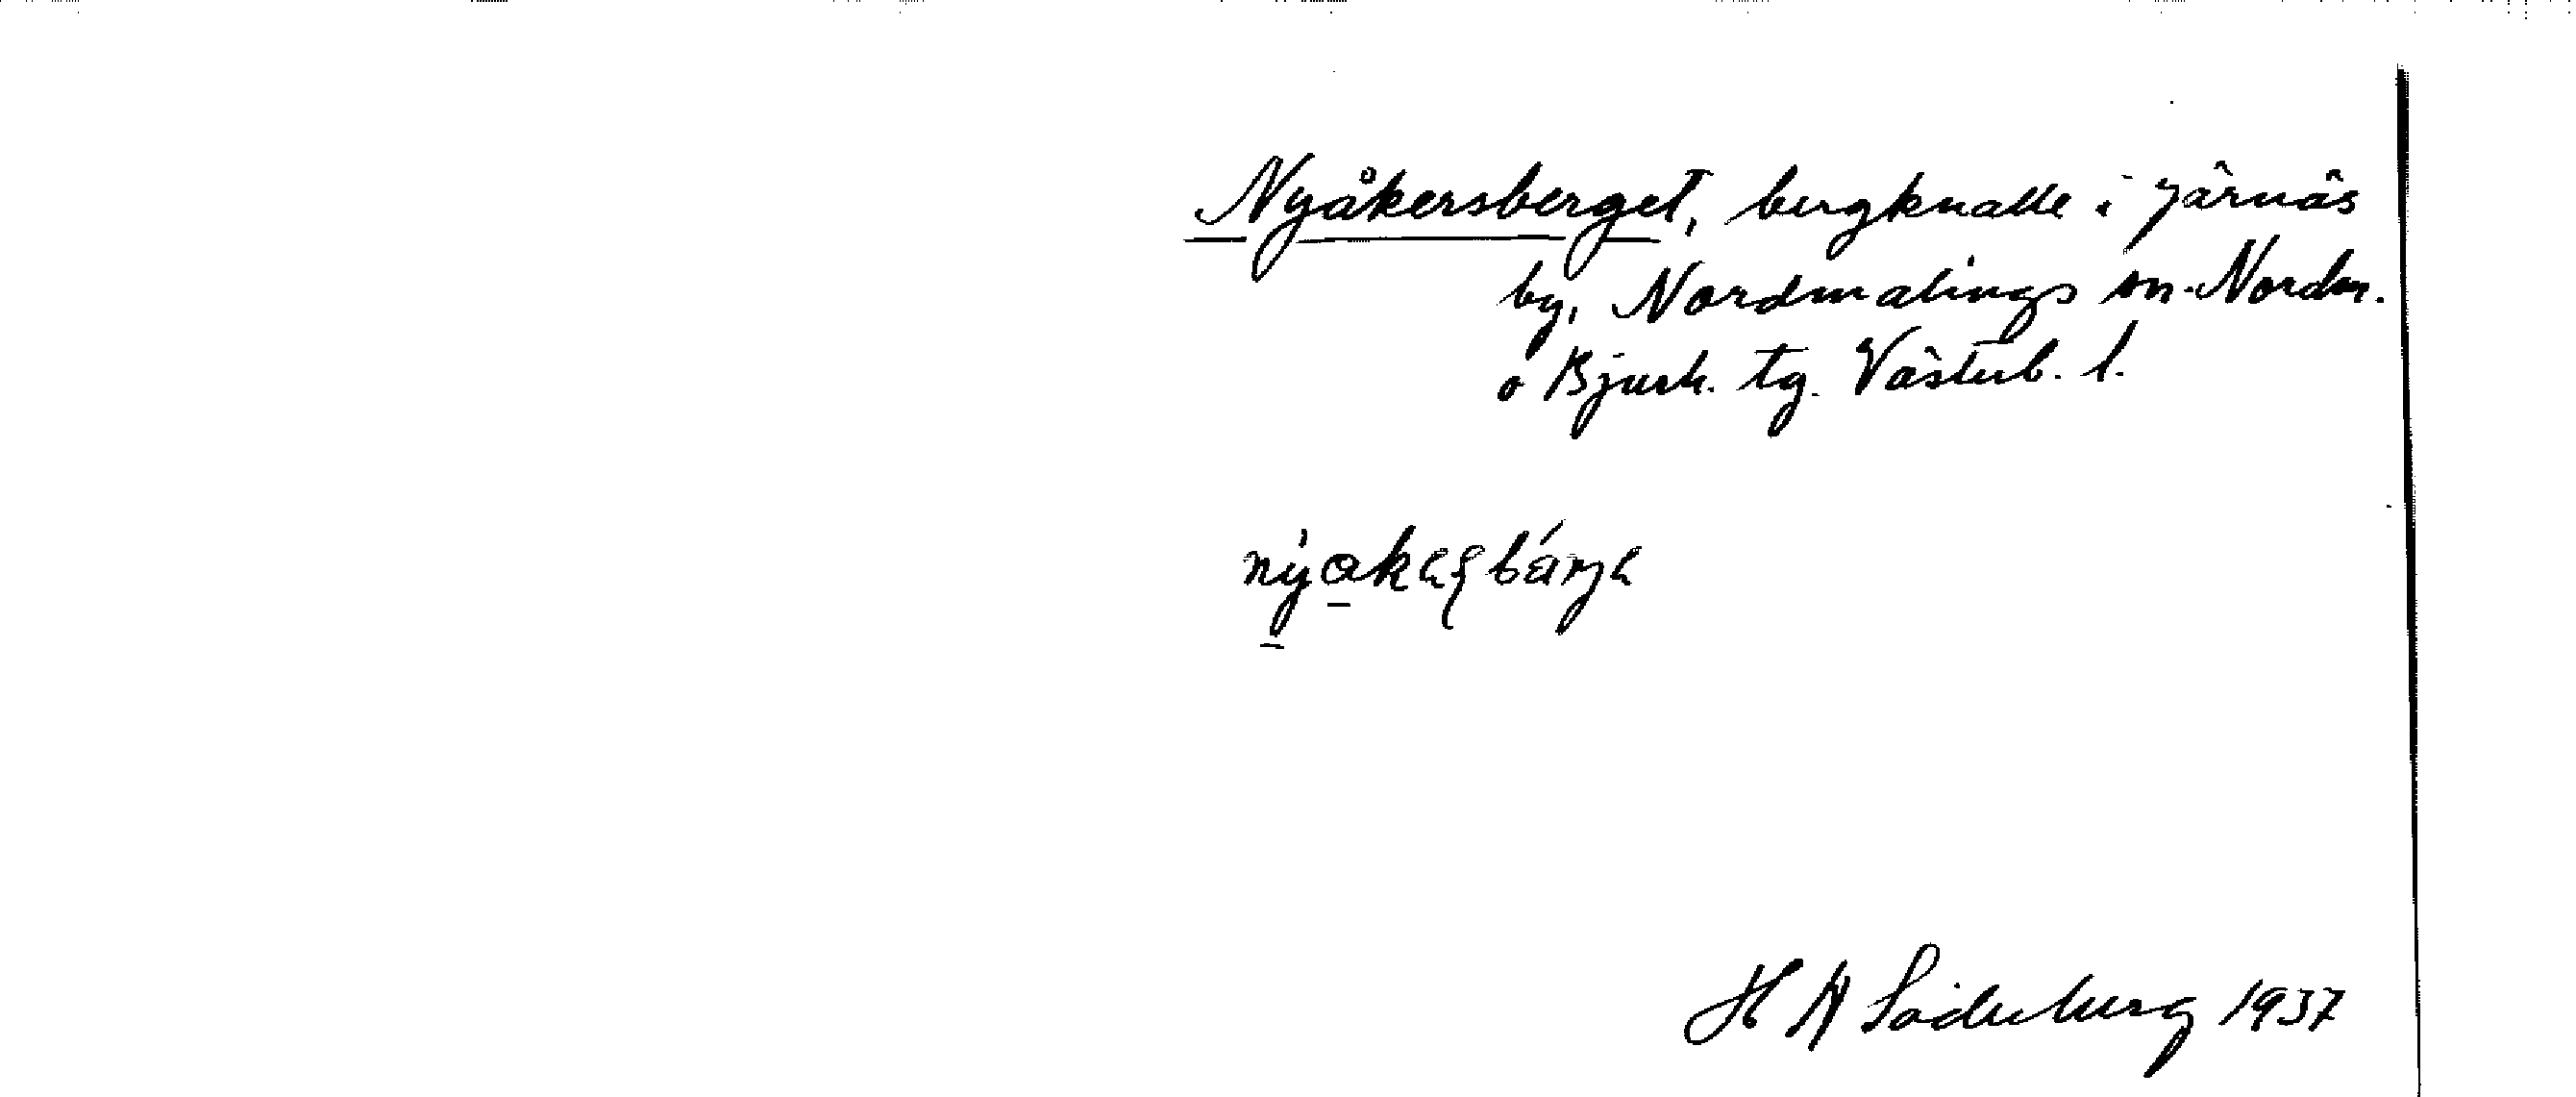 Nyåkersberget, bergknalle i Järnäs
by, Nordmalings sn. Nordm.
o Bjurh. tg. Västerb. l.
H A Söderberg 1937